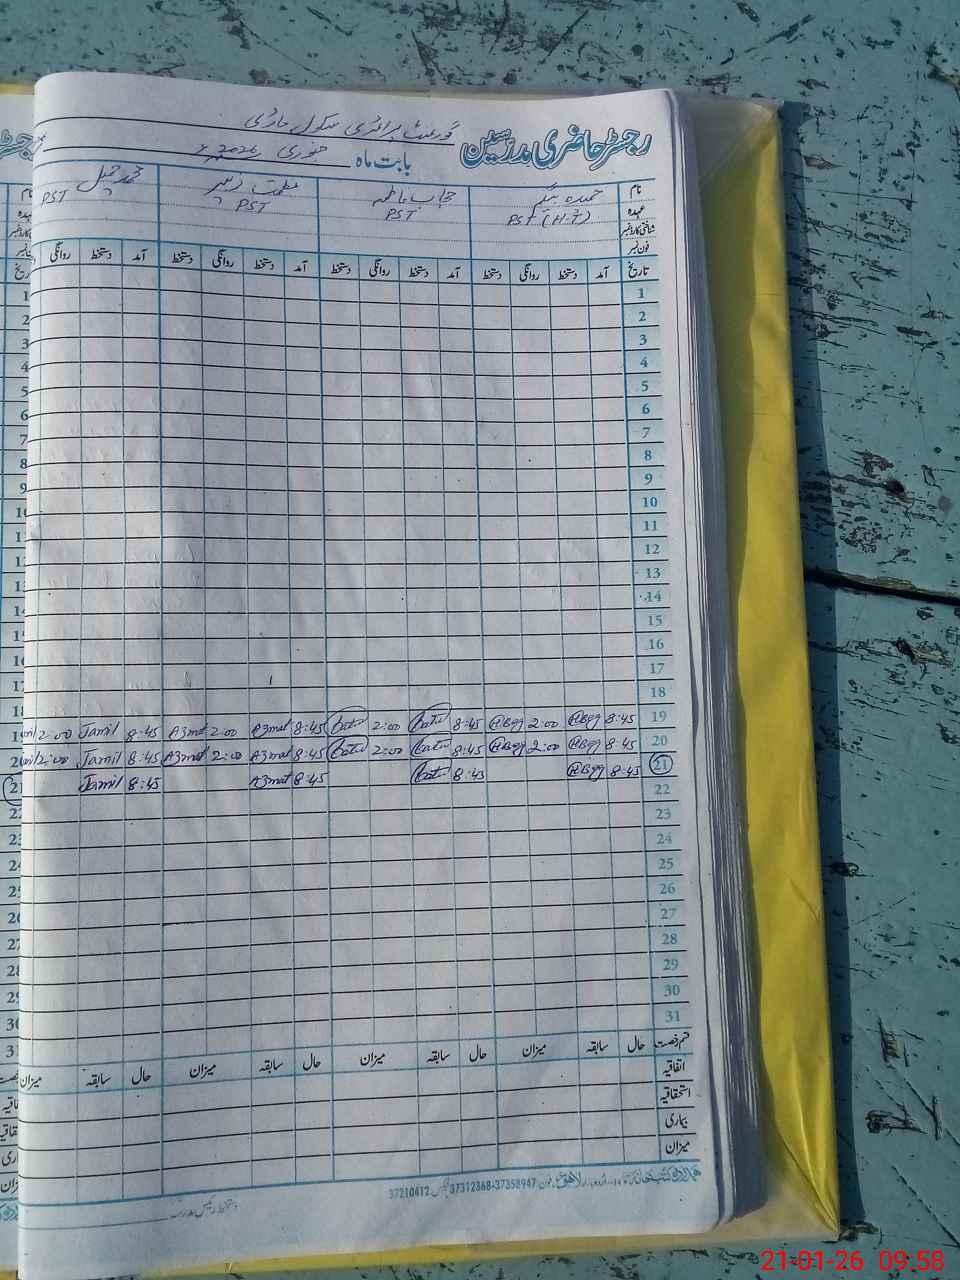 رجسٹر حاضری مدرسین
گورنمنٹ پرائمری سکول ماڑی
بابت ماہ جنوری 2026ء
نام حمیدہ بیگم حجاب فاطمہ عظمت زبیر محمد جمیل
عہدہ PST (H.T) PST PST PST
شناختی کارڈ نمبر
فون نمبر
تاریخ آمد دستخط روانگی دستخط آمد دستخط روانگی دستخط آمد دستخط روانگی دستخط آمد دستخط روانگی
1
2
3
4
5
6
7
8
9
10
11
12
13
14
15
16
17
18
19 8:45 HBgg 2:00 HBgg 8:45 2:00 8:45 Azmat 2:00 Azmat 8:45 Jamil 2:00
20 8:45 HBgg 2:00 HBgg 8:45 2:00 8:45 Azmat 2:00 Azmat 8:45 Jamil 2:00
21 8:45 HBgg 8:45 8:45 Azmat 8:45 Jamil
22
23
24
25
26
27
28
29
30
31
قسم رخصت حال سابقہ میزان حال سابقہ میزان حال سابقہ میزان حال سابقہ میزان
اتفاقیہ
استحقاقیہ
بیماری
میزان
اردو بازار لاہور فون 37358947-37312368 فیکس 37210412
دستخط رئیس مدرسہ
21-01-26 09:58